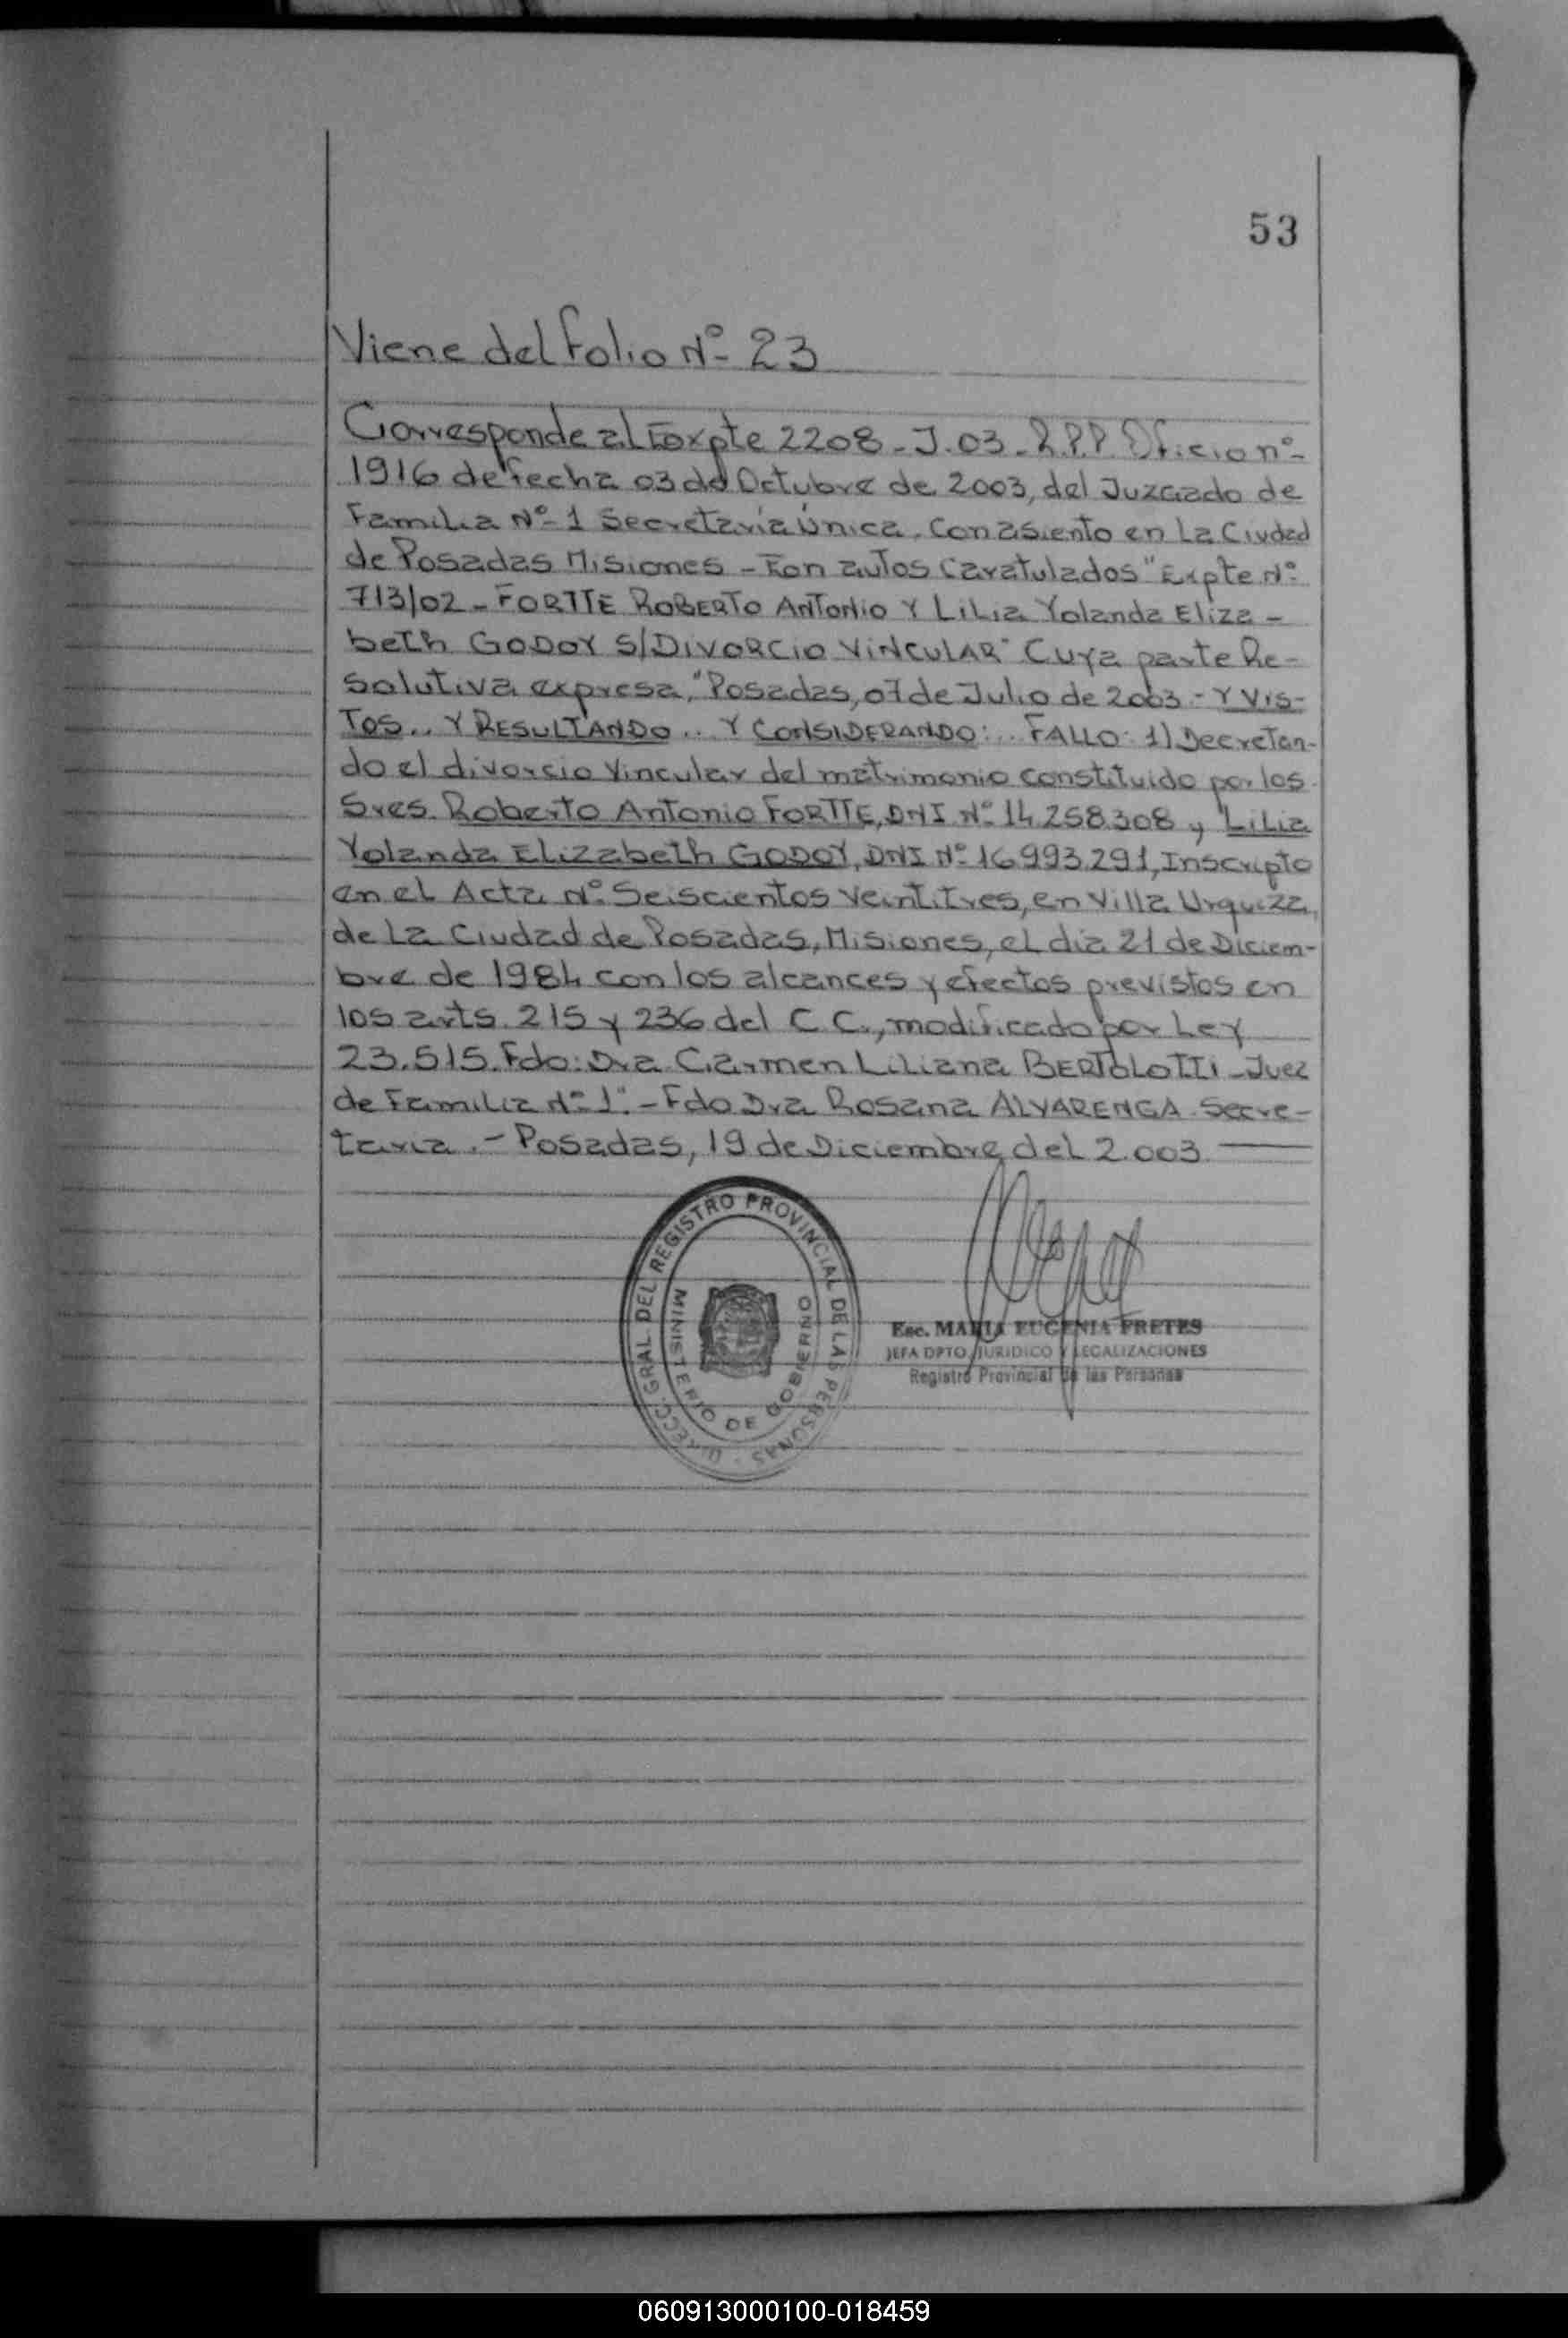 53
Viene del folio Nº 23
Corresponde al Expte 2208-J.03-R.P.P. Oficio nº
1916 de fecha 03 de Octubre de 2003, del Juzgado de
Familia Nº 1 Secretaría Única, con asiento en La Ciudad
de Posadas Misiones - En autos Caratulados "Expte Nº
713/02 - FORTTE ROBERTO AntoNio Y LiLia Yolanda Eliza-
beth GODOY S/DIVORCio VINCULAR" Cuya parte Re-
solutiva expresa, "Posadas, 07 de Julio de 2003.- Y VIS-
TOS.. Y RESULTANDO... Y CONSIDERANDO:.. FALLO: 1) Decretan-
do el divorcio Vincular del matrimonio constituido por los
Sres. Roberto Antonio FORTTE, DNI Nº 14.258.308 y Lilia
Yolanda Elizabeth GODOY, DNI Nº 16.993.291, Inscripto
en el Acta Nº Seiscientos Veintitres, en Villa Urquiza,
de La Ciudad de Posadas, Misiones, el día 21 de Diciem-
bre de 1984 con los alcances y efectos previstos en
los arts. 215 y 236 del C.C., modificado por Ley
23.515. Fdo: Dra Carmen Liliana BERTOLOTTI - Juez
de Familia Nº 1" - Fdo Dra Rosana ALVARENGA - Secre-
taria. - Posadas, 19 de Diciembre del 2.003
DIRECC. GRAL. DEL REGISTRO PROVINCIAL DE LAS PERSONAS
MINISTERIO DE GOBIERNO
Esc. MARIA EUGENIA FRETES
JEFA DPTO. JURIDICO Y LEGALIZACIONES
Registro Provincial de las Personas
060913000100-018459